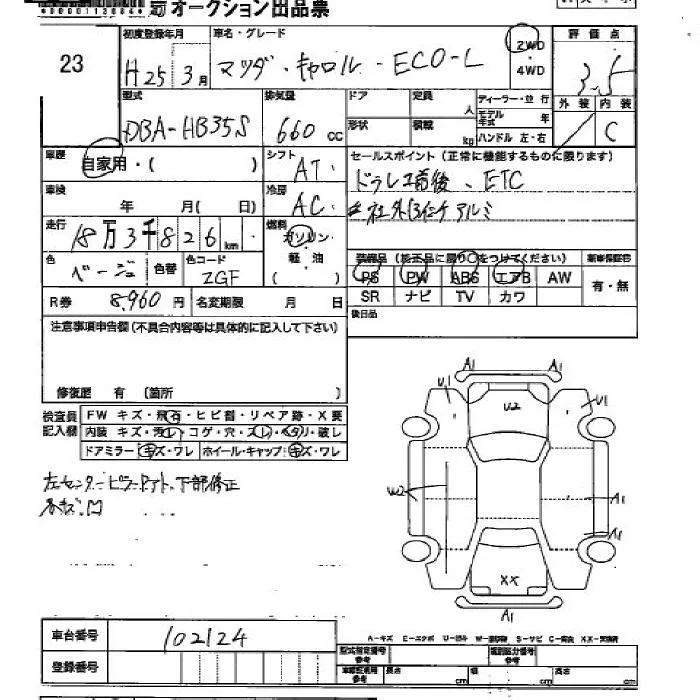 オークション出品票
23
初度登録年月 車名・グレード 評価点
H25年3月 マツダ・キャロル・ECO-L 2WD 4WD 3.5
型式 排気量 ドア 定員 人 ディーラー・並行 外装 内装
DBA-HB35S 660cc 形状 積載 kg モデル年式 年 ハンドル 左・右 C
車歴 自家用・( ) シフト AT セールスポイント(正常に機能するものに限ります)
車検 年 月(日) 冷房 AC ドラレコ前後、ETC
走行 18万3千826km 燃料 ガソリン 軽油
社外13インチアルミ
装備品 新車保証書
色 ベージュ 色替 色コード ZGF
PS PW ABS エアB AW 有・無
SR ナビ TV カワ
R券 8,960円 名変期限 月 日
後日品
注意事項申告欄(不具合内容等は具体的に記入して下さい)
修復歴 有 (箇所 )
検査員記入欄
FW キズ・飛石・ヒビ割・リペア跡・X要
内装 キズ・汚レ・コゲ・穴・スレ・ヘタリ・破レ
ドアミラー キズ・ワレ ホイール・キャップ キズ・ワレ
左センターピラーアト、下部修正
A1 A1
U1 U2 U1
W2 A1
A1
XX
A1
車台番号 102124
登録番号
型式指定番号 参考 類別区分番号 参考
長さ cm 幅 cm 高さ cm